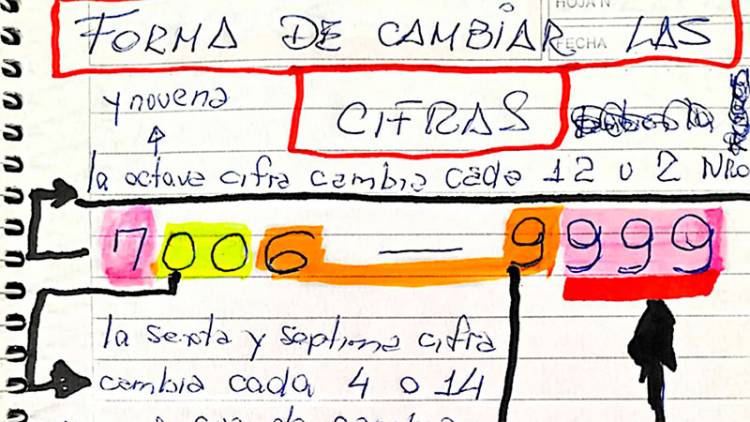 HOJA N
FORMA DE CAMBIAR LAS
FECHA
y novena
CIFRAS
la octava cifra cambia cada 12 o 2 NRO
7006 — 9999
la sexta y septima cifra
cambia cada 4 o 14